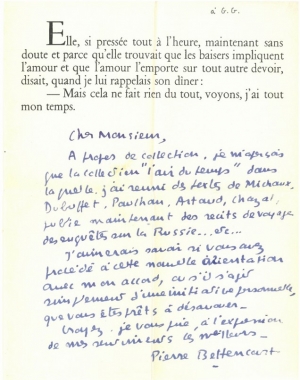 à G.G.
Elle, si pressée tout à l'heure, maintenant sans
doute et parce qu'elle trouvait que les baisers impliquent
l'amour et que l'amour l'emporte sur tout autre devoir,
disait, quand je lui rappelais son dîner :
— Mais cela ne fait rien du tout, voyons, j'ai tout
mon temps.
Cher Monsieur,
A propos de collection, je m'aperçois
que la collection "l'air du temps" dans
laquelle j'ai réuni des textes de Michaux,
Dubuffet, Paulhan, Artaud, Chazal,
publie maintenant des récits de voyage
des enquêtes sur la Russie... etc...
J'aimerais savoir si vous avez
procédé à cette nouvelle orientation
avec mon accord, ou s'il s'agit
simplement d'une initiative personnelle
que vous êtes prêts à désavouer -
Croyez, je vous prie, à l'expression
de mes sentiments les meilleurs -
Pierre Bettencourt